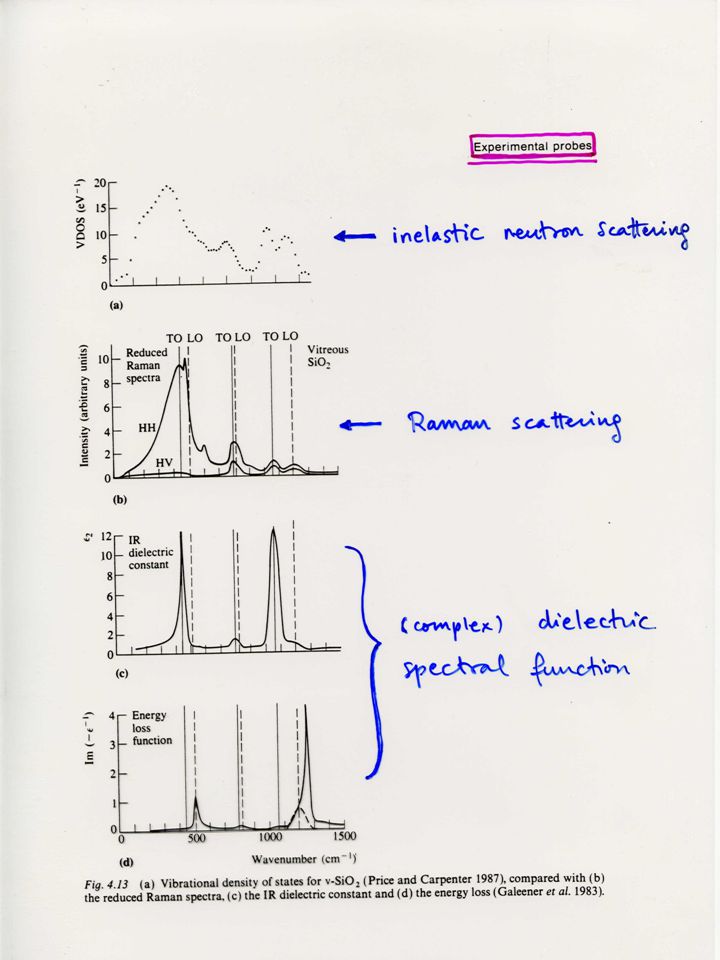 Experimental probes
20
15
10
5
0
VDOS (eV⁻¹)
← inelastic neutron scattering
(a)
TO LO TO LO TO LO
Reduced
Raman
spectra
Vitreous
SiO₂
10
8
6
4
2
0
Intensity (arbitrary units)
HH
HV
← Raman scattering
(b)
ϵ₂
12
10
8
6
4
2
0
IR
dielectric
constant
(complex) dielectric
spectral function
(c)
4
3
2
1
0
Im (−ϵ⁻¹)
Energy
loss
function
0 500 1000 1500
(d) Wavenumber (cm⁻¹)
Fig. 4.13 (a) Vibrational density of states for v-SiO₂ (Price and Carpenter 1987), compared with (b)
the reduced Raman spectra, (c) the IR dielectric constant and (d) the energy loss (Galeener et al. 1983).